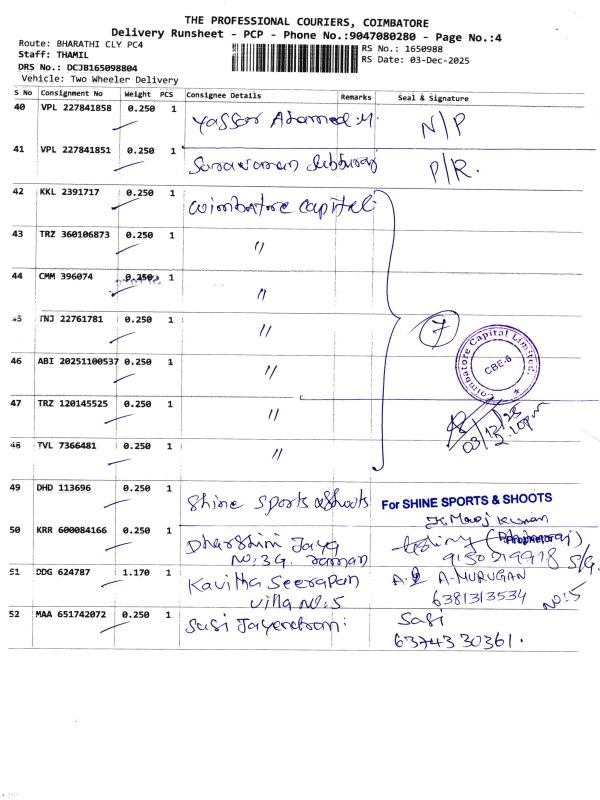 THE PROFESSIONAL COURIERS, COIMBATORE
Delivery Runsheet - PCP - Phone No.:9047080280 - Page No.:4
Route: BHARATHI CLY PC4
Staff: THAMIL
DRS No.: DCJB165098804
Vehicle: Two Wheeler Delivery
RS No.: 1650988
RS Date: 03-Dec-2025
S No Consignment No Weight PCS Consignee Details Remarks Seal & Signature
40 VPL 227841858 0.250 1 Yasser Ahamed.M. N/P
41 VPL 227841851 0.250 1 Saravanan P/R.
42 KKL 2391717 0.250 1 Coimbatore Capital
43 TRZ 360106873 0.250 1 "
44 CMM 396074 0.250 1 "
45 TNJ 22761781 0.250 1 "
7
Coimbatore Capital Limited.
CBE-6
46 ABI 20251100537 0.250 1 "
47 TRZ 120145525 0.250 1 "
03/12/25
2.10pm
48 TVL 7366481 0.250 1 "
49 DHD 113696 0.250 1 Shine Sports & Shoots For SHINE SPORTS & SHOOTS
50 KRR 600084166 0.250 1 Dharshini Jaya
No:3G. 9150219918 S/G.
51 DDG 624787 1.170 1 Kavitha Seerapan A. A-MURUGAN
Villa No:5 6381313534 No:5
52 MAA 651742072 0.250 1 Sasi Sasi
63743 30361.